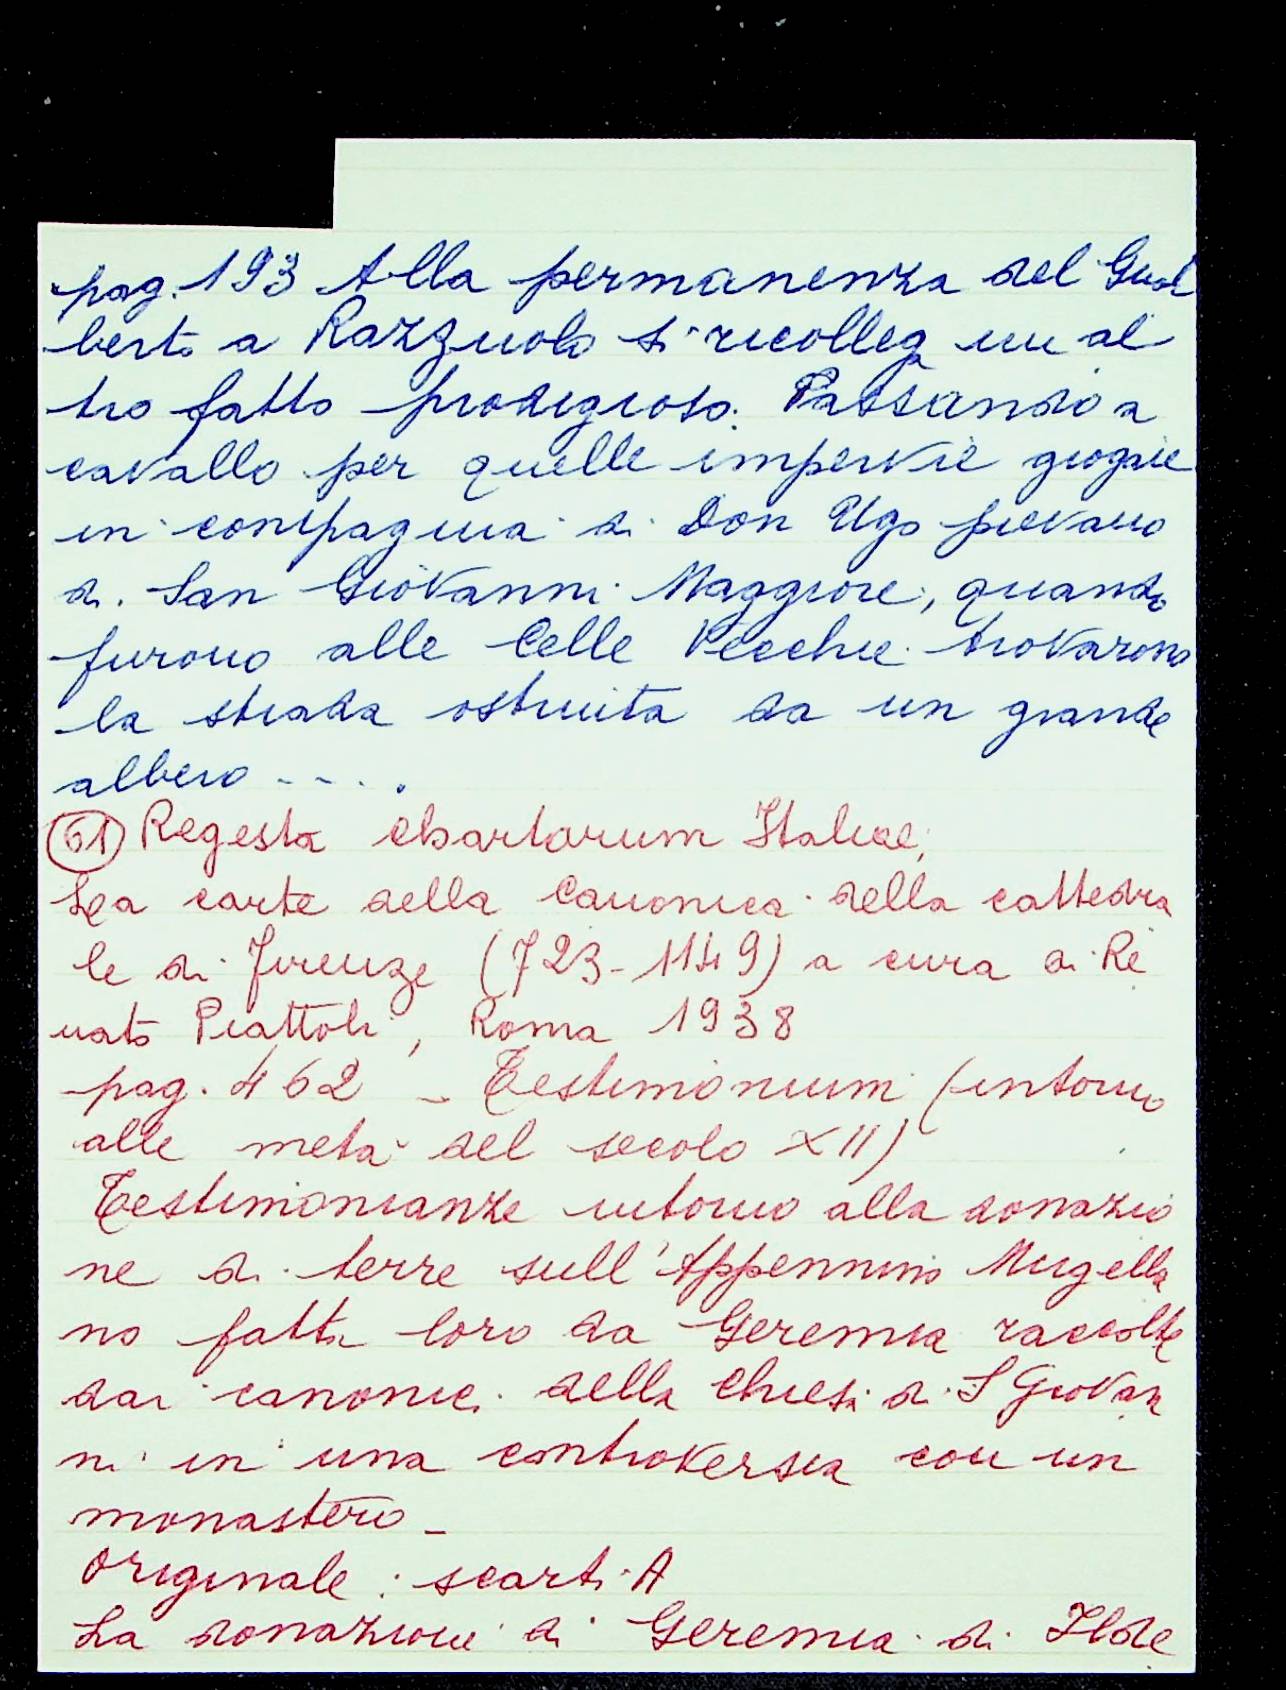 pag. 193 Alla permanenza del Gual
berto a Razzuolo si ricollega un al
tro fatto prodigioso. Passando a
cavallo per quelle impervie giogaie
in compagnia di Don Ugo pievano
di San Giovanni Maggiore, quando
furono alle Celle Vecchie trovarono
la strada ostruita da un grande
albero - - - .
61 Regesta chartarum Italiae,
Lea carte della Canonica della cattedra
le di Firenze (723-1149) a cura di Re
nato Piattoli, Roma 1938
pag. 462 - Testimonium (intorno
alle metà del secolo XII)
Testimonianze intorno alla donazio
ne di terre sull'Appennino Mugella
no fatta loro da Geremia raccolte
dai canonici della Chiesa di S Giovan
ni in una controversia con un
monastero -
Originale : scarti A
La donazione di Geremia di Ilde